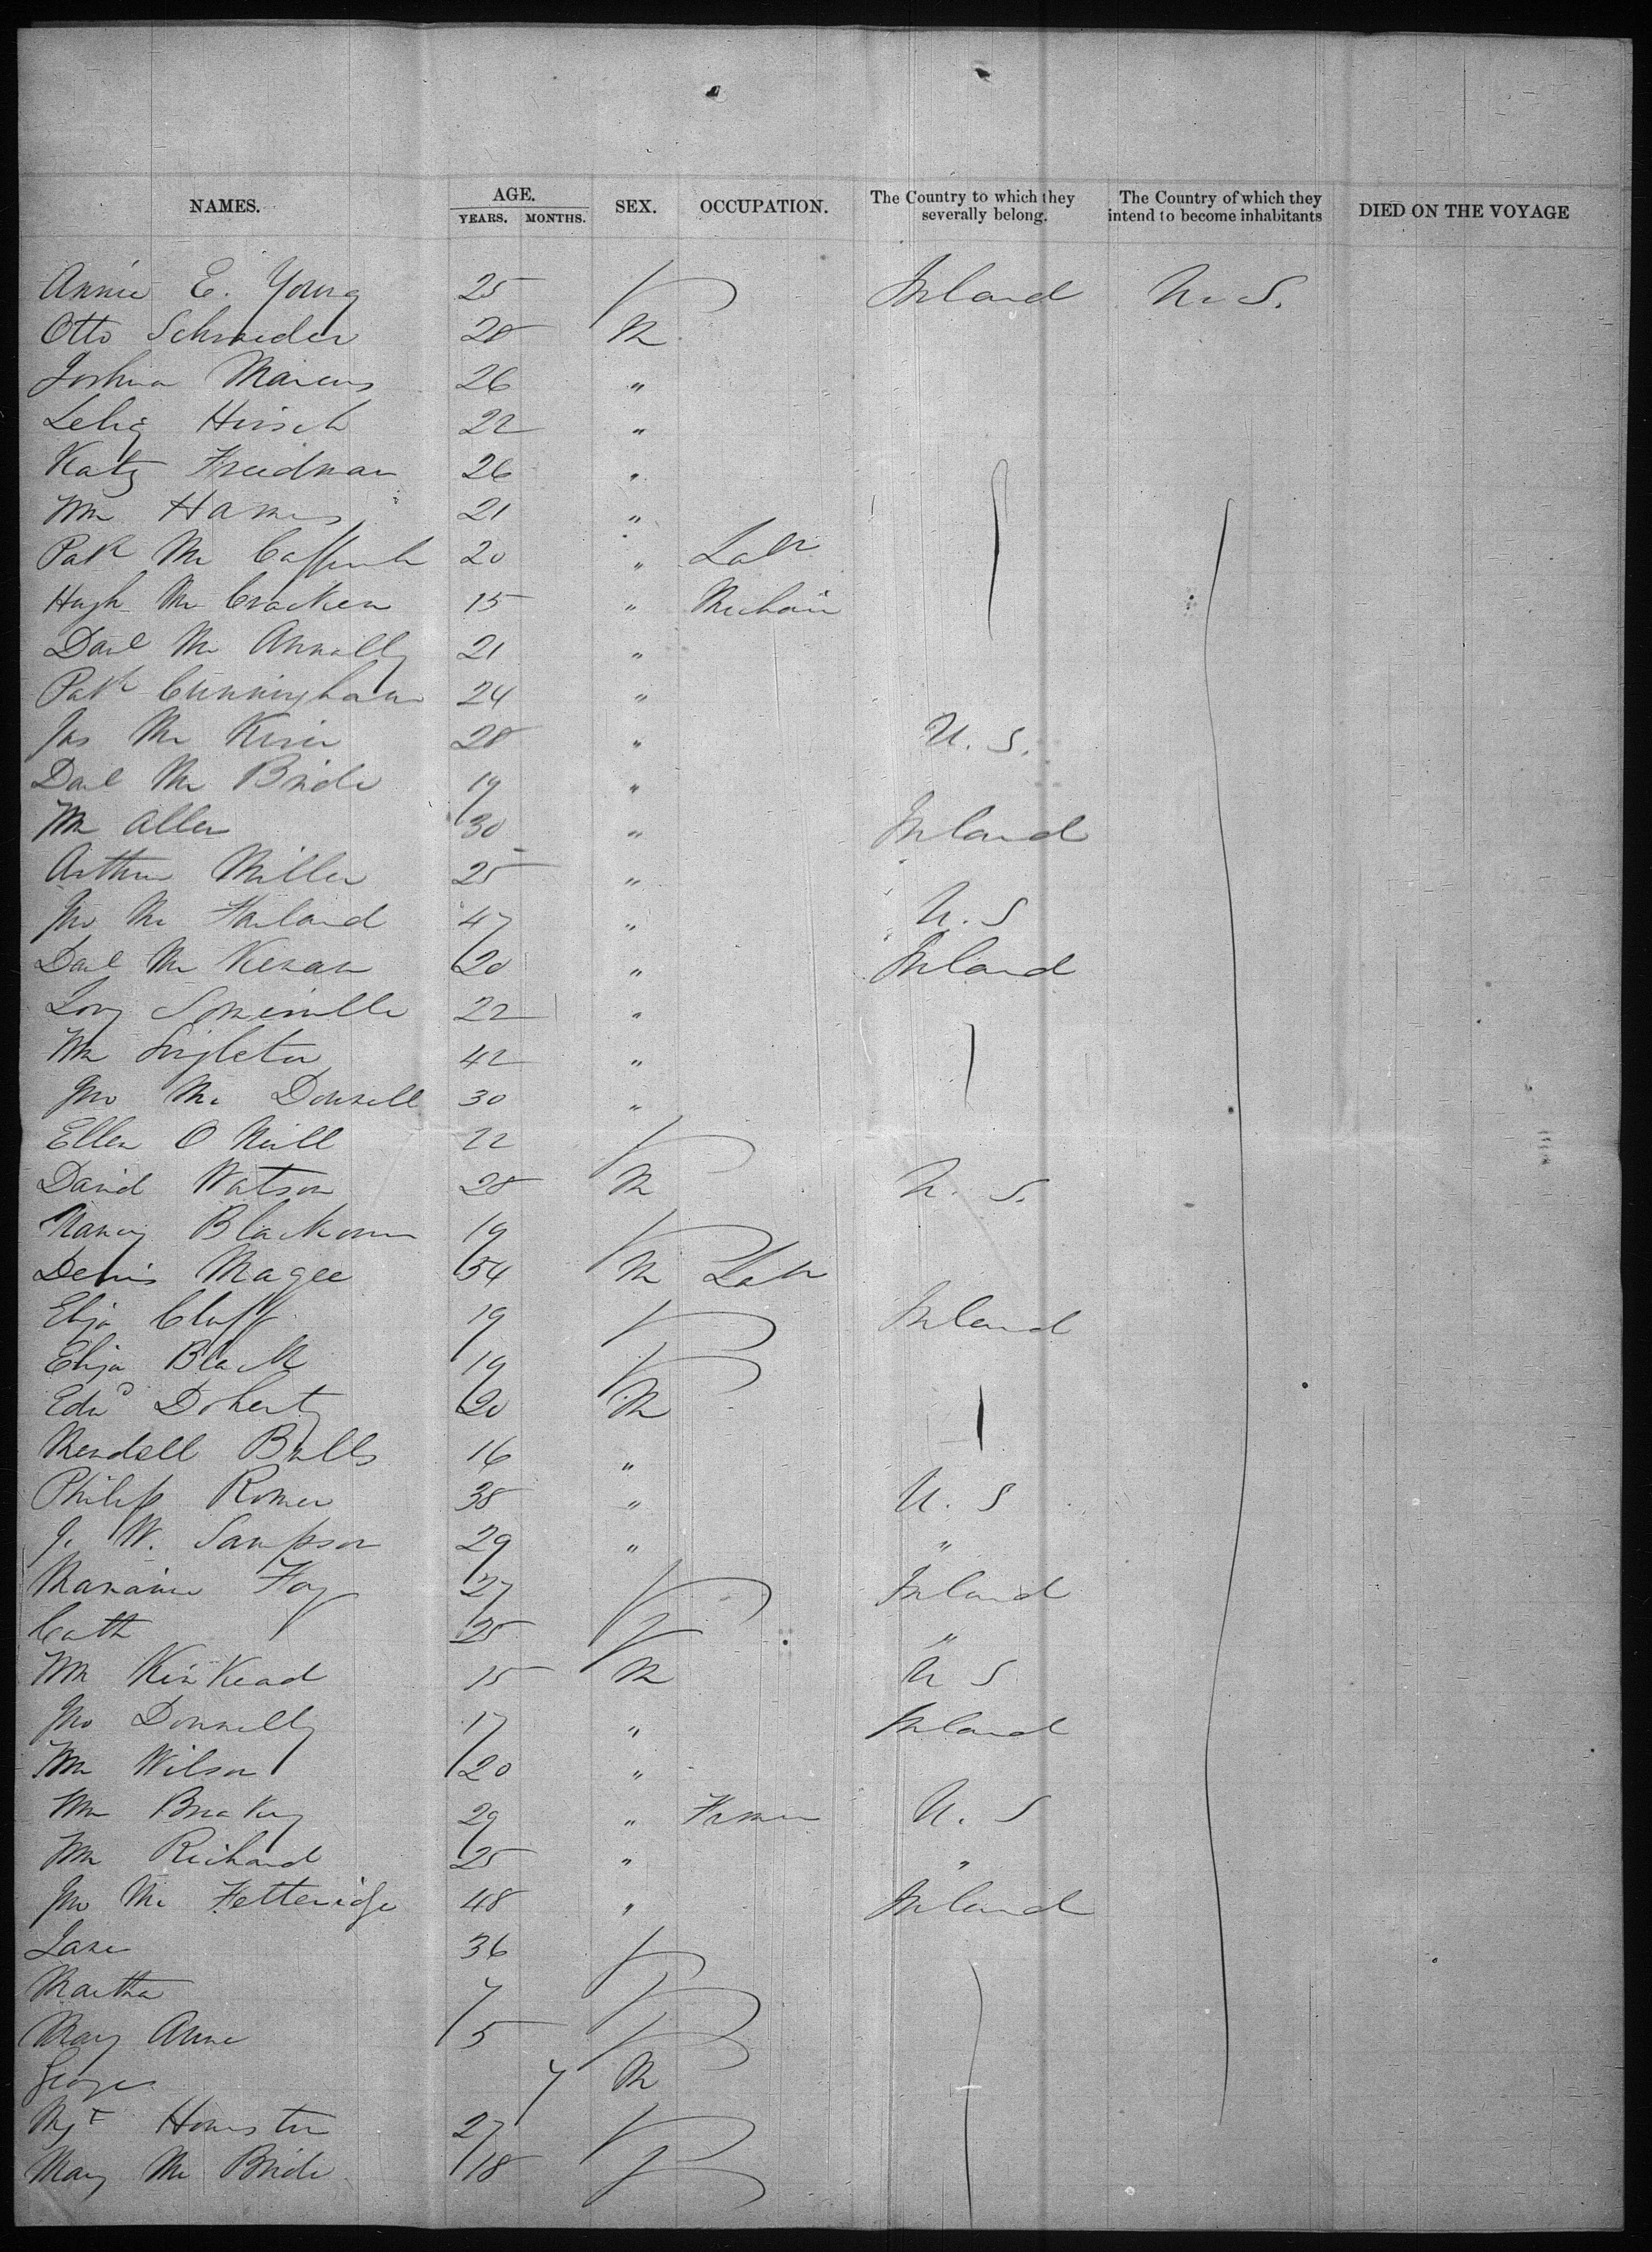 NAMES. AGE. YEARS. MONTHS. SEX. OCCUPATION. The Country to which they severally belong. The Country of which they intend to become inhabitants DIED ON THE VOYAGE
Annie E. Young 25 Ireland U. S.
Otto Schraeder 28 M
Joshua Marcus 26 "
Hirsch 22 "
Katz Freedman 26 "
Wm 21 "
Patk Mc 20 " Labr
Hugh Mc Cracken 15 "
Danl Mc Annally 21 "
Patk Cunningham 24 "
Jas Mc 28 " U. S.
Danl Mc Bride 19 "
Wm Allen 30 " Ireland
Arthur Miller 25 "
Jno Mc Farland 47 " U. S
Danl Mc 20 " Ireland
Somerville 22 "
Wm Singleton 42 "
Jno Mc Donnell 30 "
Ellen O Neill 22
David Watson 28 M U. S.
Nancy 19
Denis Magee 54 M Labr
Eliza Cluff 19 Ireland
Eliza Black 19
Edwd Doherty 20 M
16 "
Philip Romer 38 " U. S
J. W. Sampson 29 " "
Foy 27 Ireland
Cath 25 "
Wm Kinkead 15 M U S
Jno Donnelly 17 " Ireland
Wm Wilson 20 "
Wm 29 " U. S
Wm Richard 25 " "
Jno Mc Fetteridge 48 " Ireland
Jane 36
Martha 7
Mary Anne 5
George 7 M
Mgt Houston 27
Mary Mc Bride 18